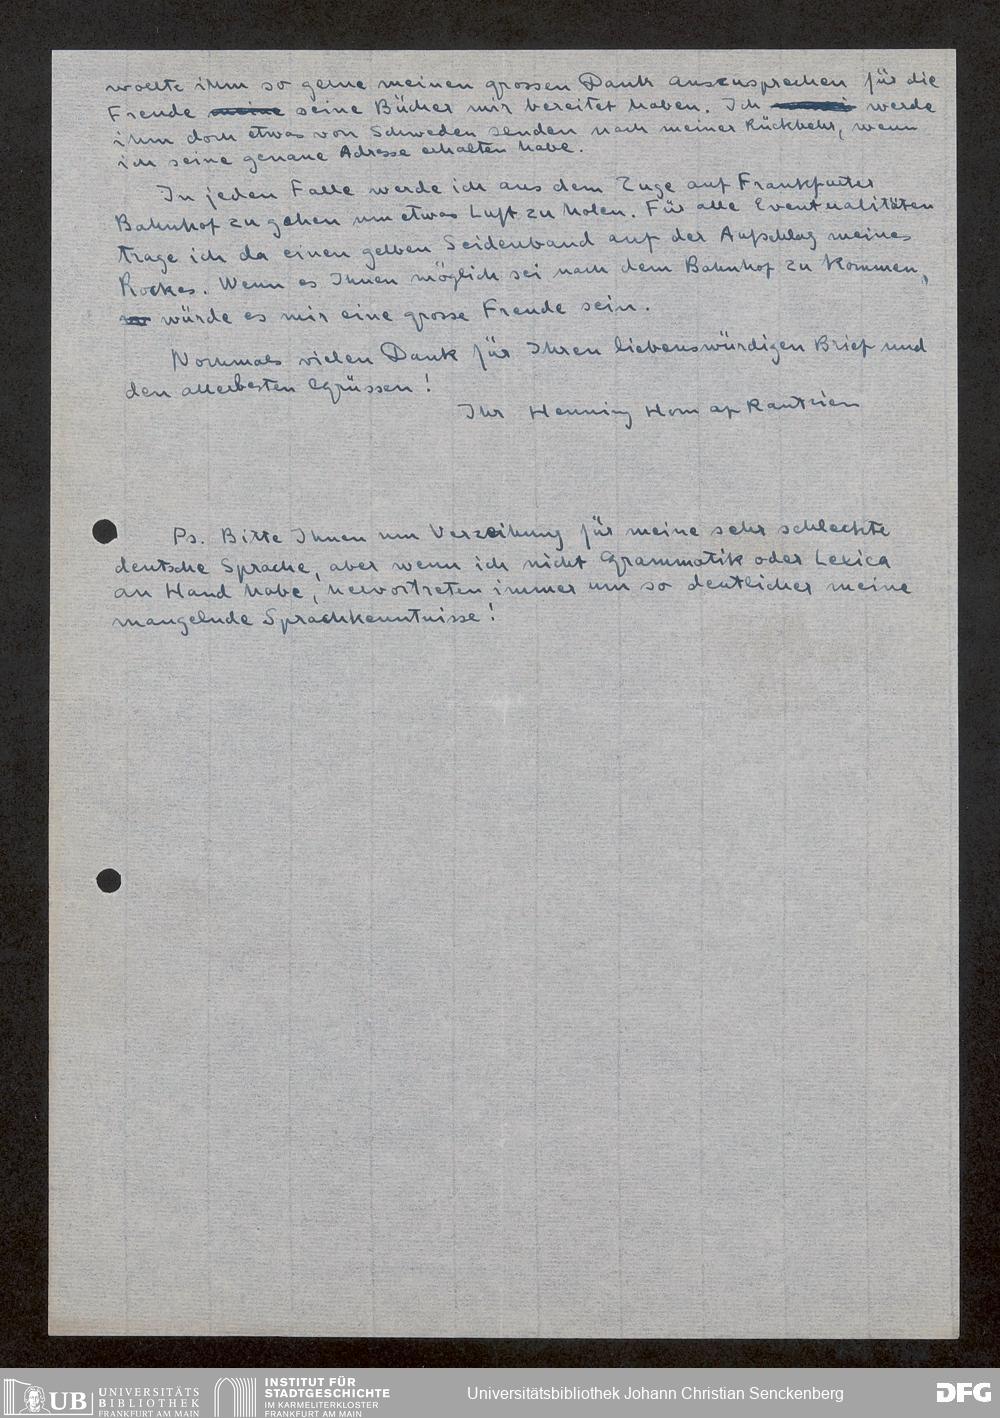 wollte ihm so gerne meinen grossen Dank auszusprechen für die
Freude seine Bücher mir bereitet haben. Ich werde
ihm doch etwas von Schweden senden nach meiner Rückkehr, wenn
ich seine genaue Adresse erhalten habe.
In jeden Falle werde ich aus dem Zuge auf Frankfurter
Bahnhof zu gehen um etwas Luft zu holen. Für alle Eventualitäten
trage ich da einen gelben Seidenband auf der Aufschlag meines
Rockes. Wenn es Ihnen möglich sei nach dem Bahnhof zu kommen,
würde es mir eine grosse Freude sein.
Nochmals vielen Dank für Ihren liebenswürdigen Brief und
den allerbesten Grüssen!
Ihr Henning Horn af Rantzien
Ps. Bitte Ihnen um Verzeihung für meine sehr schlechte
deutsche Sprache, aber wenn ich nicht Grammatik oder Lexica
an Hand habe, hervortreten immer um so deutlicher meine
mangelnde Sprachkenntnisse!
UB UNIVERSITÄTS
BIBLIOTHEK
FRANKFURT AM MAIN
INSTITUT FÜR
STADTGESCHICHTE
IM KARMELITERKLOSTER
FRANKFURT AM MAIN
Universitätsbibliothek Johann Christian Senckenberg
DFG